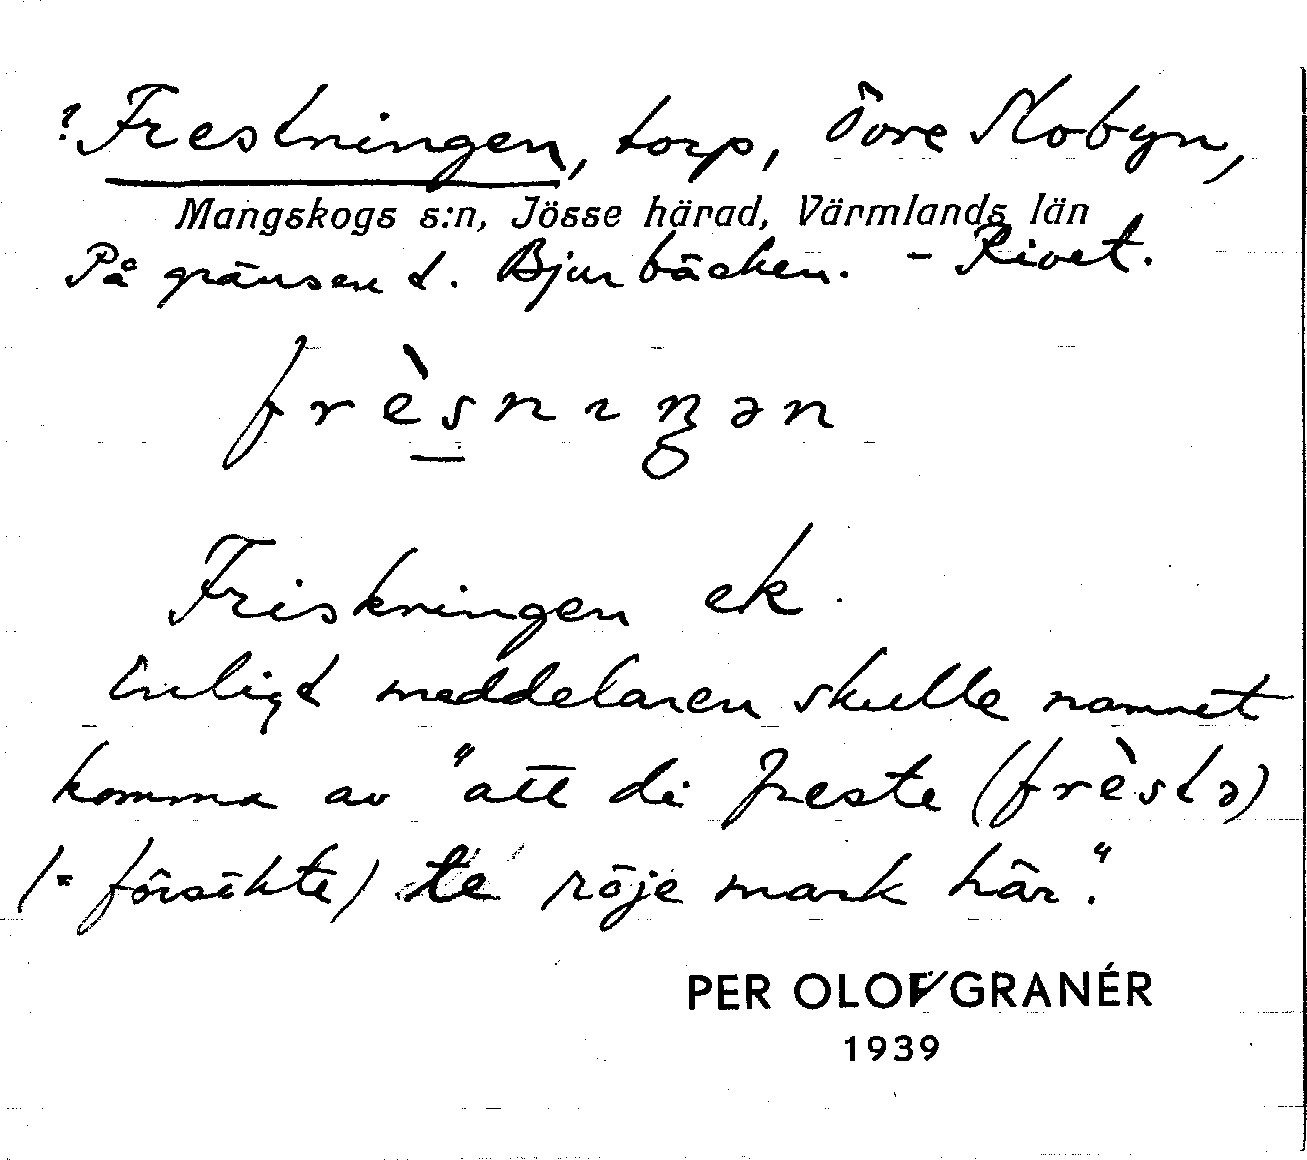 ? Frestningen, torp, Övre Slobyn,
Mangskogs s:n, Jösse härad, Värmlands län
På gränsen t. Bjurbäcken. - Rivet.
frèsnıŋən
Friskningen ek.
Enligt meddelaren skulle namnet
komma av "att di freste (frèstə)
(= försökte) te röje mark här."
PER OLOF GRANÉR
1939